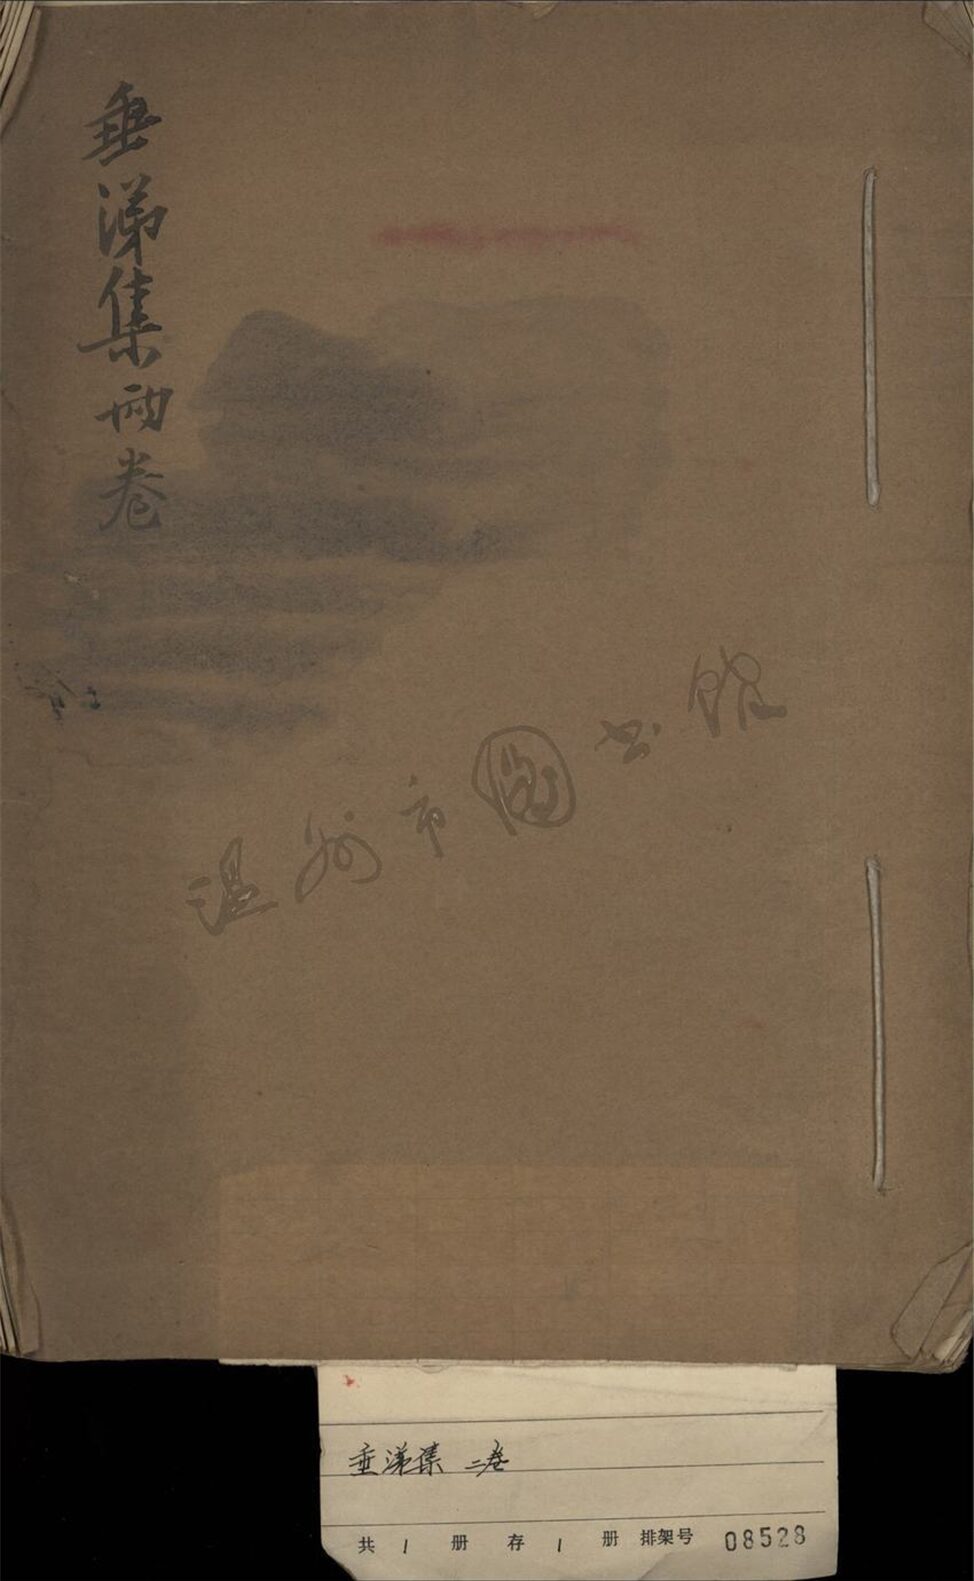 垂涕集兩卷
温州市图书馆
垂涕集 二卷
共 1 册 存 1 册 排架号 08528